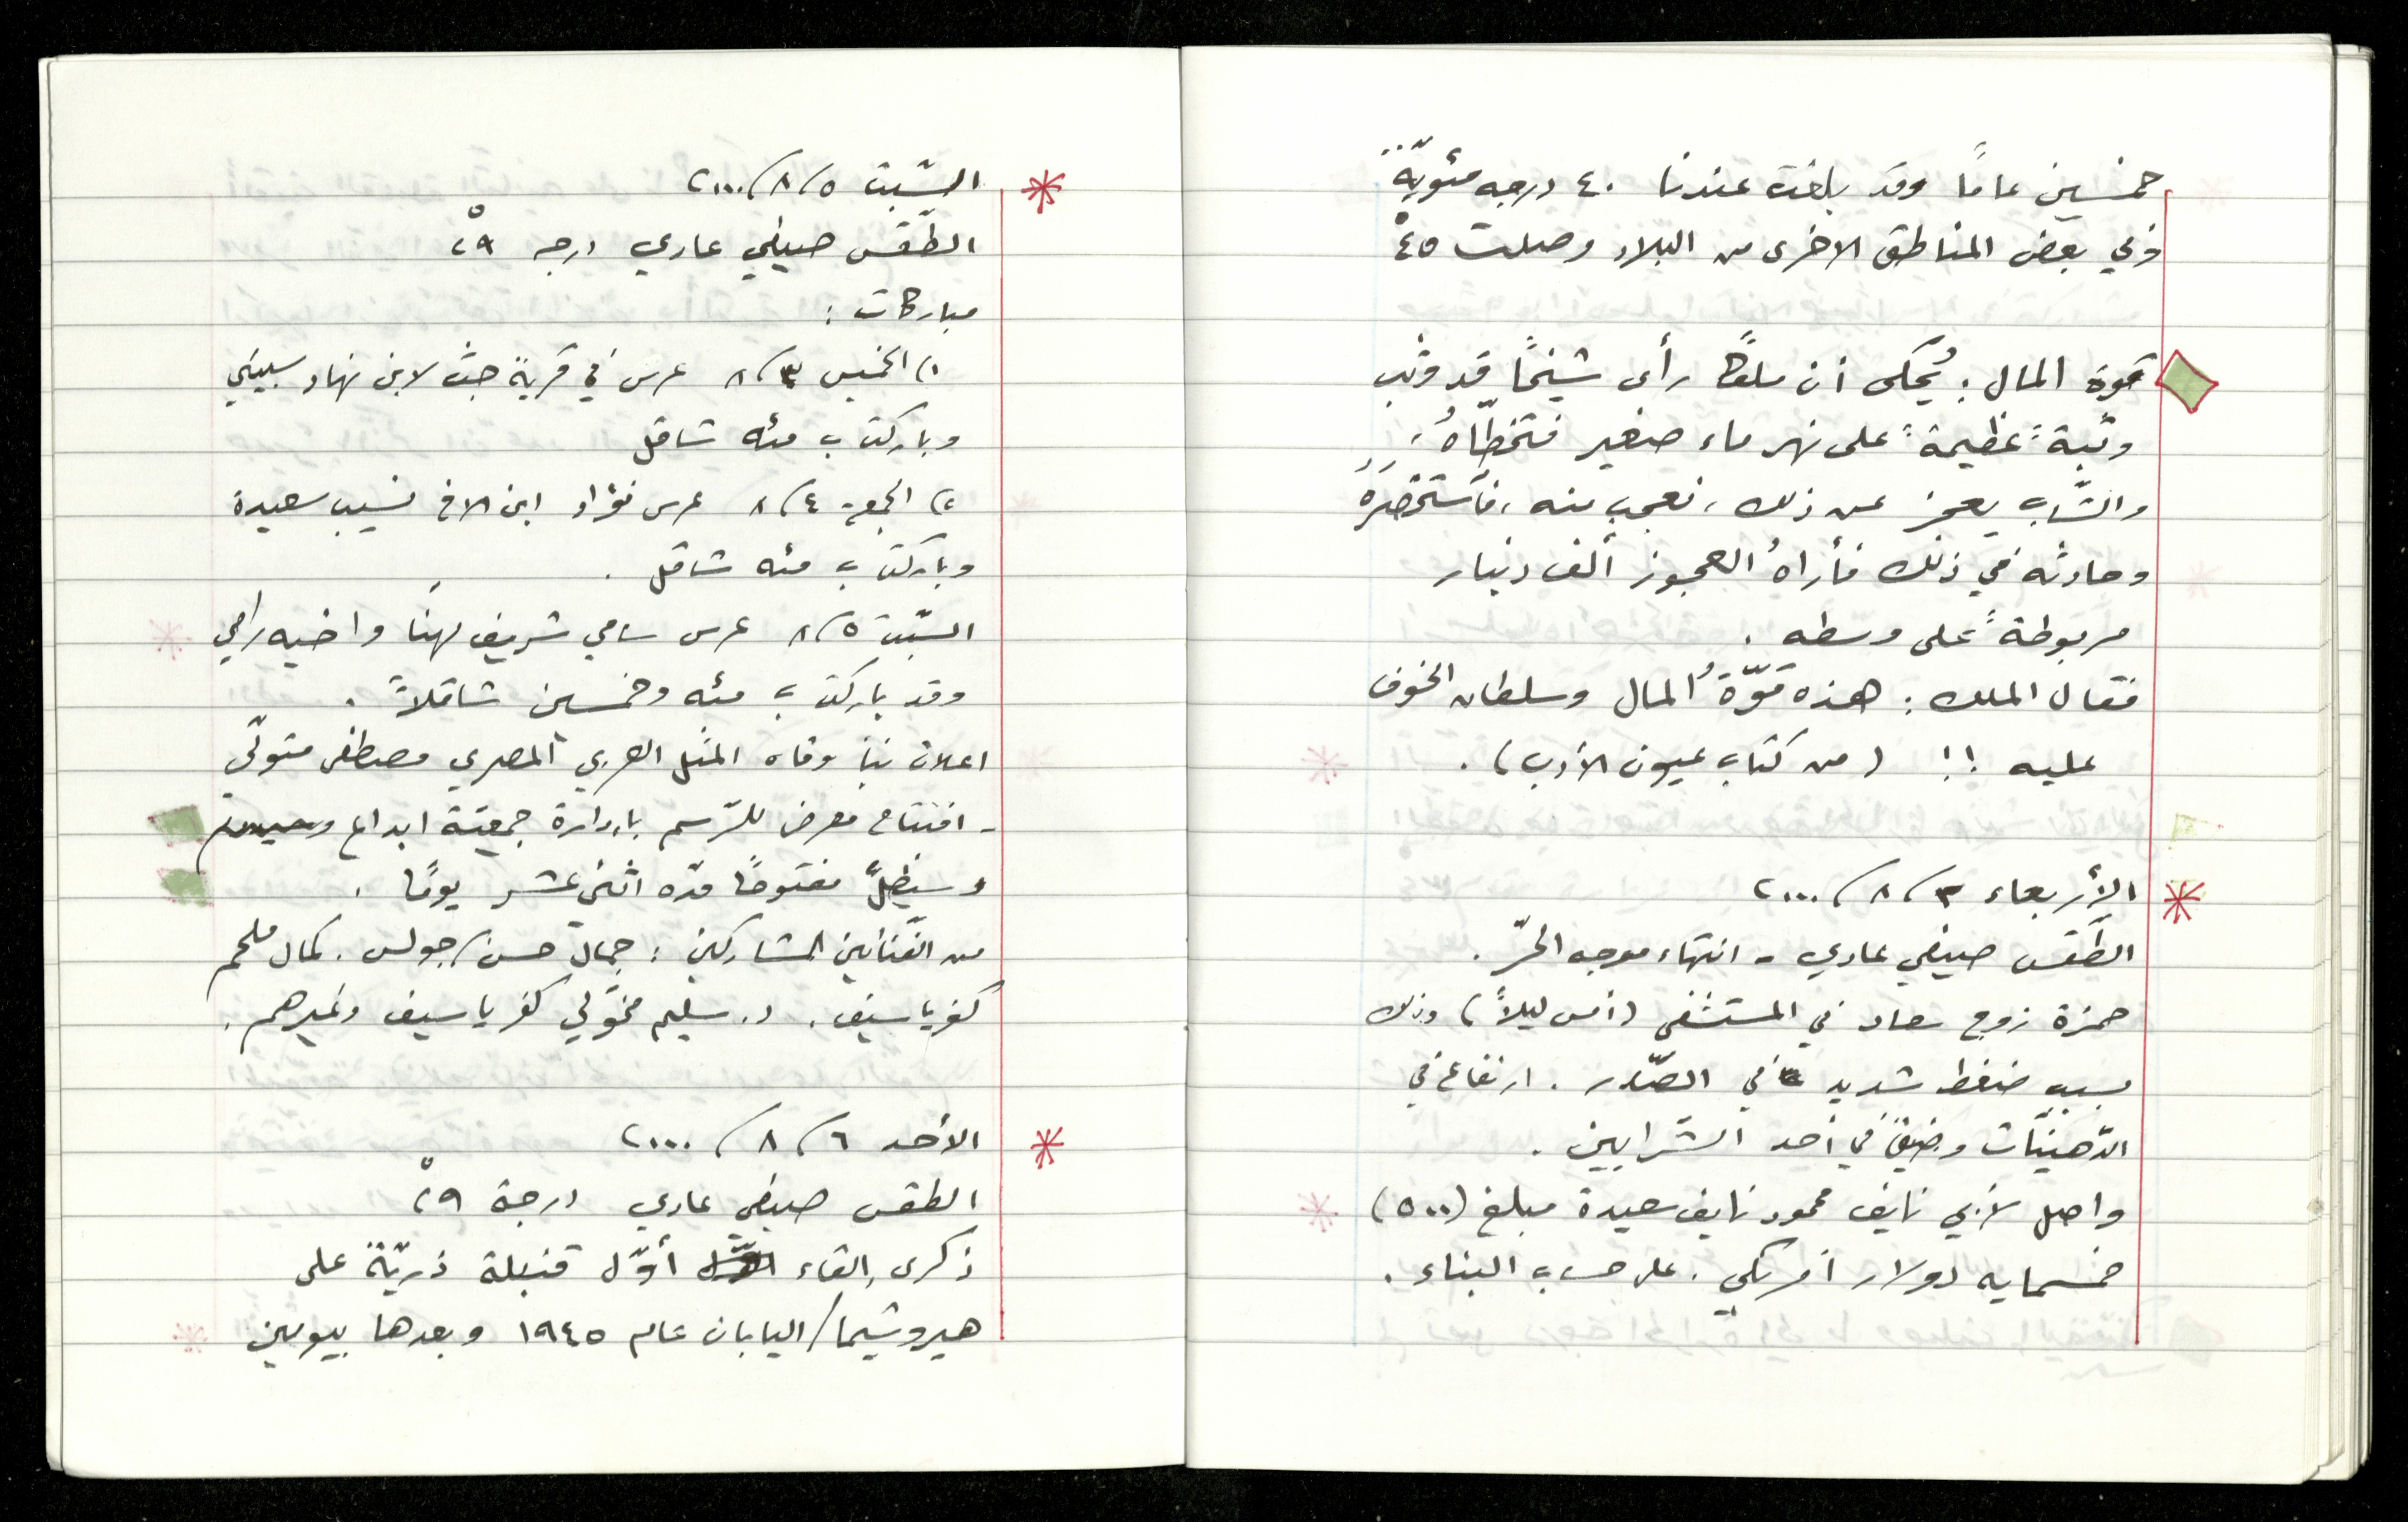 خمسين عامًا وقد بلغت عندنا ٤٠ درجه مئويّة
وفي بعض المناطق الاخرى من البلاد وصلت ٤٥°
قوة المال: يُحكى أن ملكًا رأى شيخًا قد وثب
وثبةً عظيمةً على نهر ماء صغير فتخطّاهُ،
والشّاب يعجز عن ذلك، فعجب منه، فأستحْضَرَهُ
وحادثه في ذلك فأراهُ العجوز ألف دينار
مربوطةً على وسطه.
فقال الملك: هذه قوّةُ المال وسلطان الخوف
عليه !! (من كتاب عيون الأدب).
الأربعاء ٣/٨/٢٠٠٠
الطّقس صيفي عادي - انتهاء موجه الحرّ.
حمزة زوج سعاد في المستشفى (أمس ليلاً) وذلك
بسبب ضغط شديد في الصّدر. ارتفاع في
الدّهنيّات وضيق في أحد الشّرايين.
واصل لأبي نايف محمود نايف سعيدة مبلغ (٥٠٠)
خمسمايه دولار أمريكي. على حساب البناء.
السّبت ٥/٨/٢٠٠٠
الطّقس صيفي عادي درجه ٢٩°
مباركات:
١) الخميس ٣/٨ عرس في قرية جث لابن نهاد سبيتي
وباركت ب مئه شاقل
٢) الجمعة ٤/٨ عرس فؤاد ابن الاخ نسيب سعيدة
وباركت ب مئه شاقل.
السّبت ٥/٨ عرس سامي شريف مهنا واخيه رامي
وقد باركت ب مئه وخمسين شاقلاً.
اعلان نبأ وفاه الممثل العربي المصري مصطفى متولّي
- افتتاح معرض للرّسم بإدارة جمعيّة ابداع
وسيظلّ مفتوحًا مدّه اثني عشر يومًا.
من الفنّانين المشاركين: جمال حسن/جولس. كمال ملحم
كفرياسيف. د. سليم مخّولي كفرياسيف وغيرهم.
الأحد ٦/٨/٢٠٠٠
الطقس صيفي عادي درجة ٢٩°
ذكرى إلقاء أوّل قنبلة ذريّة على
هيروشيما/اليابان عام ١٩٤٥ وبعدها بيومين